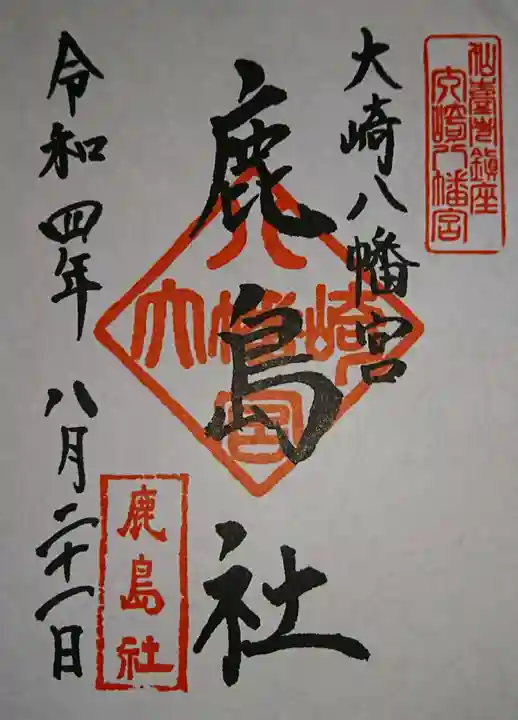 仙臺市鎮座
大崎八幡宮
大崎八幡宮
鹿島社
八
大幡崎
宮
令和四年 八月二十一日
鹿島社